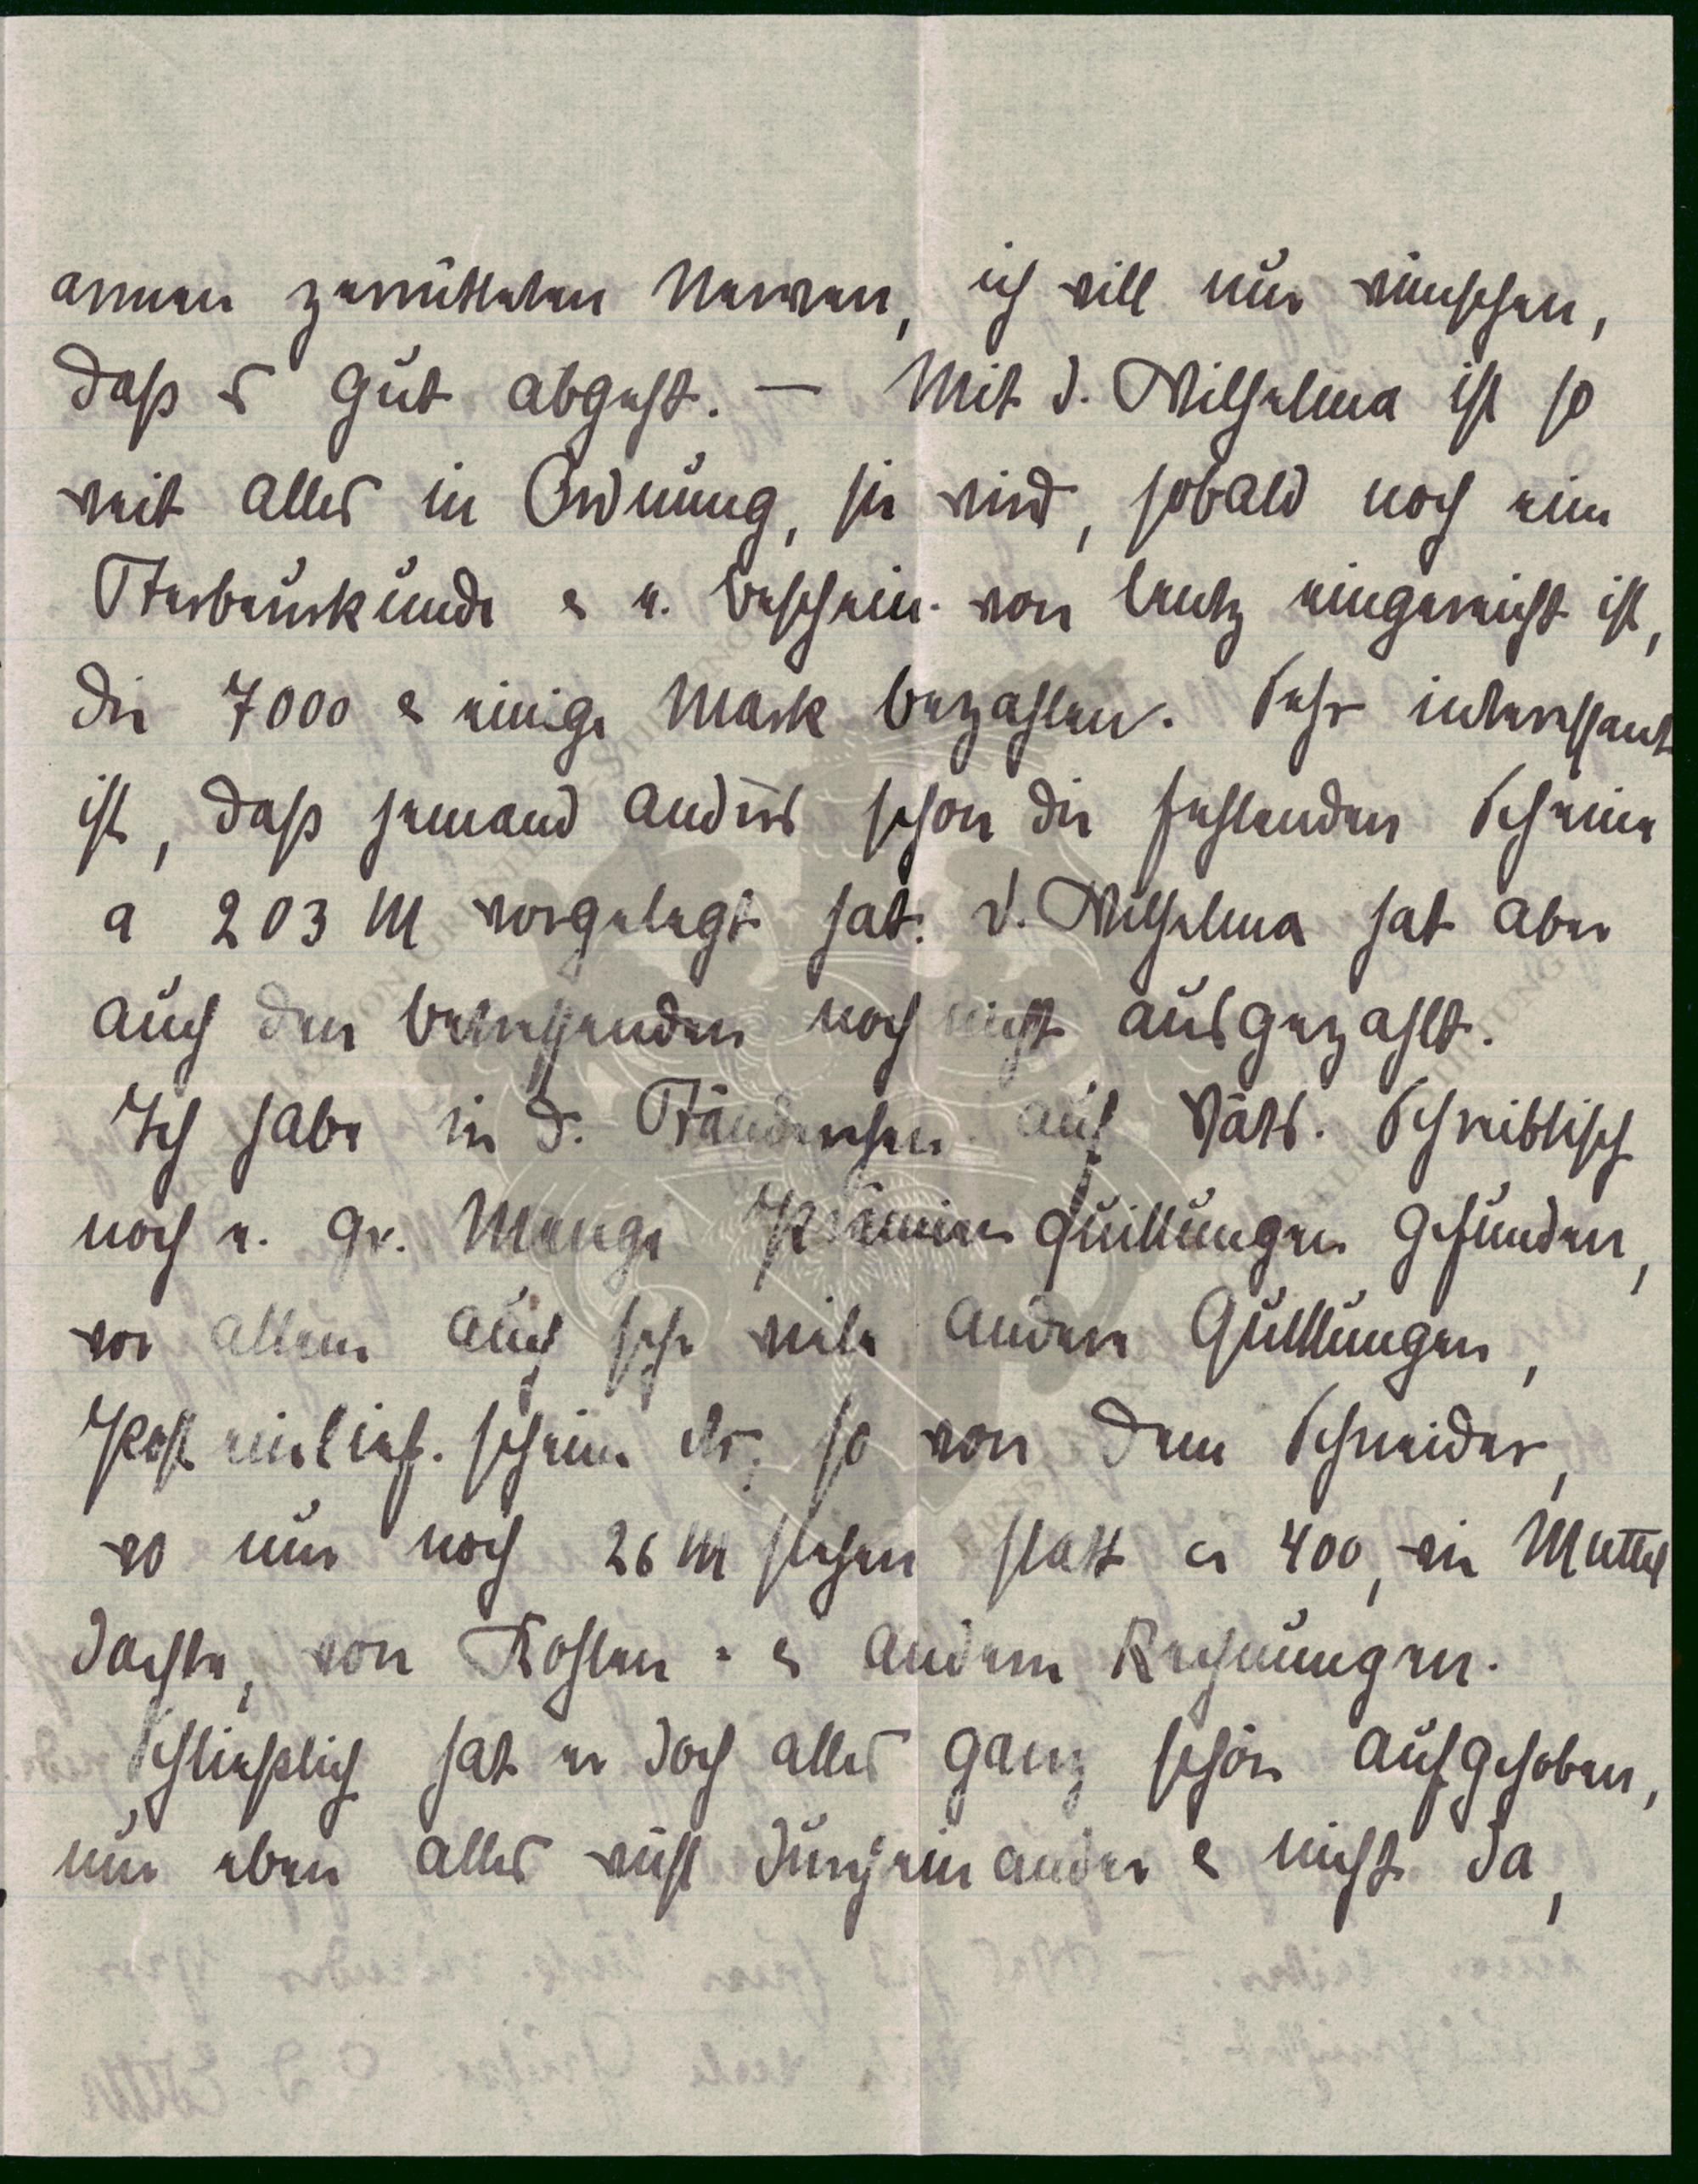 armen zerrütteten Nerven, ich will nur wünschen,
daß es gut abgeht. — Mit d. Wilhelma ist so
weit alles in Ordnung, sie wird, sobald noch eine
Sterbeurkunde & e. Beschein. von Lentz eingereicht ist,
die 7000 & einige Mark bezahlen. Sehr interessant
ist, daß jemand anders schon die fehlenden Scheine
a 203 M vorgelegt hat. D. Wilhelma hat aber
auch den betreffenden noch nicht ausgezahlt.
Ich habe in d. Ständerchen auf Väts. Schreibtisch
noch e. gr. Menge Prämienquittungen gefunden,
vor allem auch sehr viele andere Quittungen,
Posteinlief.scheine etc, so von dem Schneider,
wo nur noch 26 M stehen statt ca 400, wie Muttel
dachte, von Kohlen- & andern Rechnungen.
Schließlich hat er doch alles ganz schön aufgehoben,
nur eben alles wüst durcheinander & nicht da,